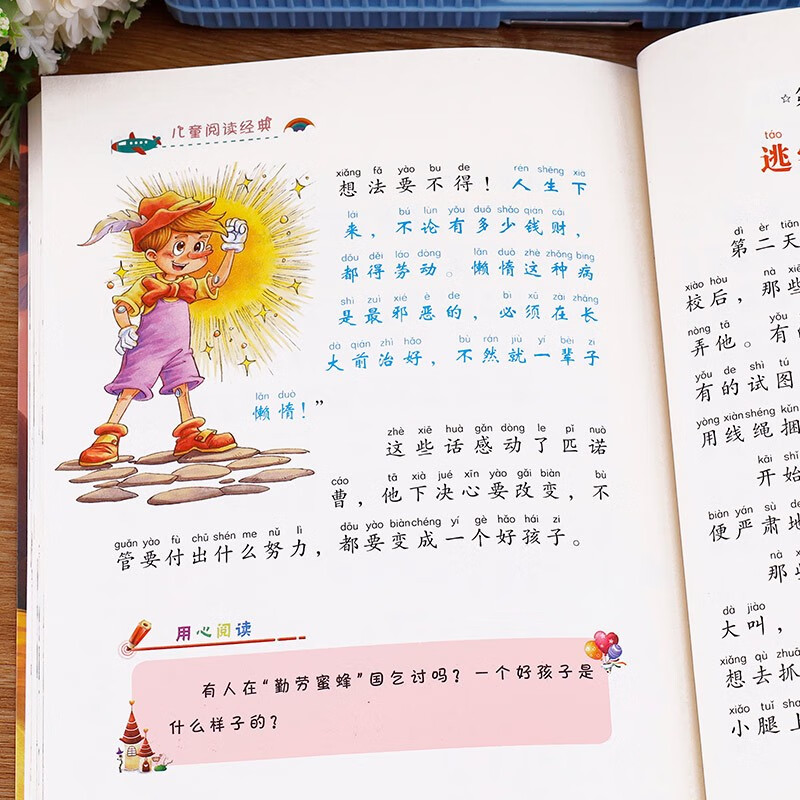 儿童阅读经典
xiǎng fǎ yào bu dé rén shēng xià
想法要不得！人生下
lái bú lùn yǒu duō shǎo qián cái
来，不论有多少钱财，
dōu děi láo dòng lǎn duò zhè zhǒng bìng
都得劳动。懒惰这种病
shì zuì xié è de bì xū zài zhǎng
是最邪恶的，必须在长
dà qián zhì hǎo bù rán jiù yí bèi zi
大前治好，不然就一辈子
lǎn duò
懒惰！”
zhè xiē huà gǎn dòng le pǐ nuò
这些话感动了匹诺
cáo tā xià jué xīn yào gǎi biàn bù
曹，他下决心要改变，不
guǎn yào fù chū shén me nǔ lì dōu yào biàn chéng yí gè hǎo hái zi
管要付出什么努力，都要变成一个好孩子。
用心阅读
有人在“勤劳蜜蜂”国乞讨吗？一个好孩子是
什么样子的？
táo
逃
dì èr tiān
第二天
xiào hòu nà xiē
校后，那些
nòng tā
弄他。有的
yǒu de shì tú
有的试图
yòng xiàn shéng kǔn
用线绳捆
kāi shǐ
开始
biàn yán sù de
便严肃地
nà
那些
dà jiào
大叫，
xiǎng qù zhuā
想去抓
xiǎo tuǐ
小腿上